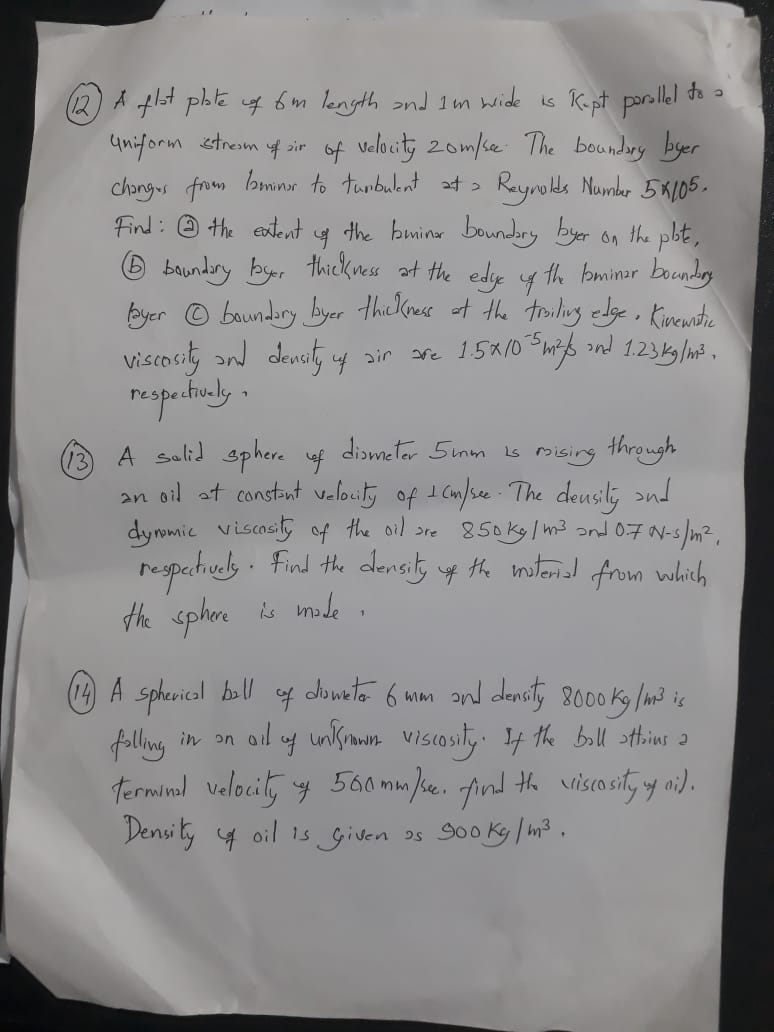 (12) A flat plate of 6m length and 1m wide is Kept parallel to a
uniform stream of air of velocity 20m/sec. The boundary layer
changes from laminar to turbulent at a Reynolds Number 5x10^5.
Find: (a) the extent of the laminar boundary layer on the plate,
(b) boundary layer thickness at the edge of the laminar boundary
layer (c) boundary layer thickness at the trailing edge. Kinematic
viscosity and density of air are 1.5x10^-5 m²/s and 1.23kg/m³,
respectively.
(13) A solid sphere of diameter 5mm is raising through
an oil at constant velocity of 1cm/sec. The density and
dynamic viscosity of the oil are 850kg/m³ and 0.7 N-s/m²,
respectively. Find the density of the material from which
the sphere is made.
(14) A spherical ball of diameter 6mm and density 8000kg/m³ is
falling in an oil of unknown viscosity. If the ball attains a
terminal velocity of 500mm/sec. find the viscosity of oil.
Density of oil is given as 900kg/m³.